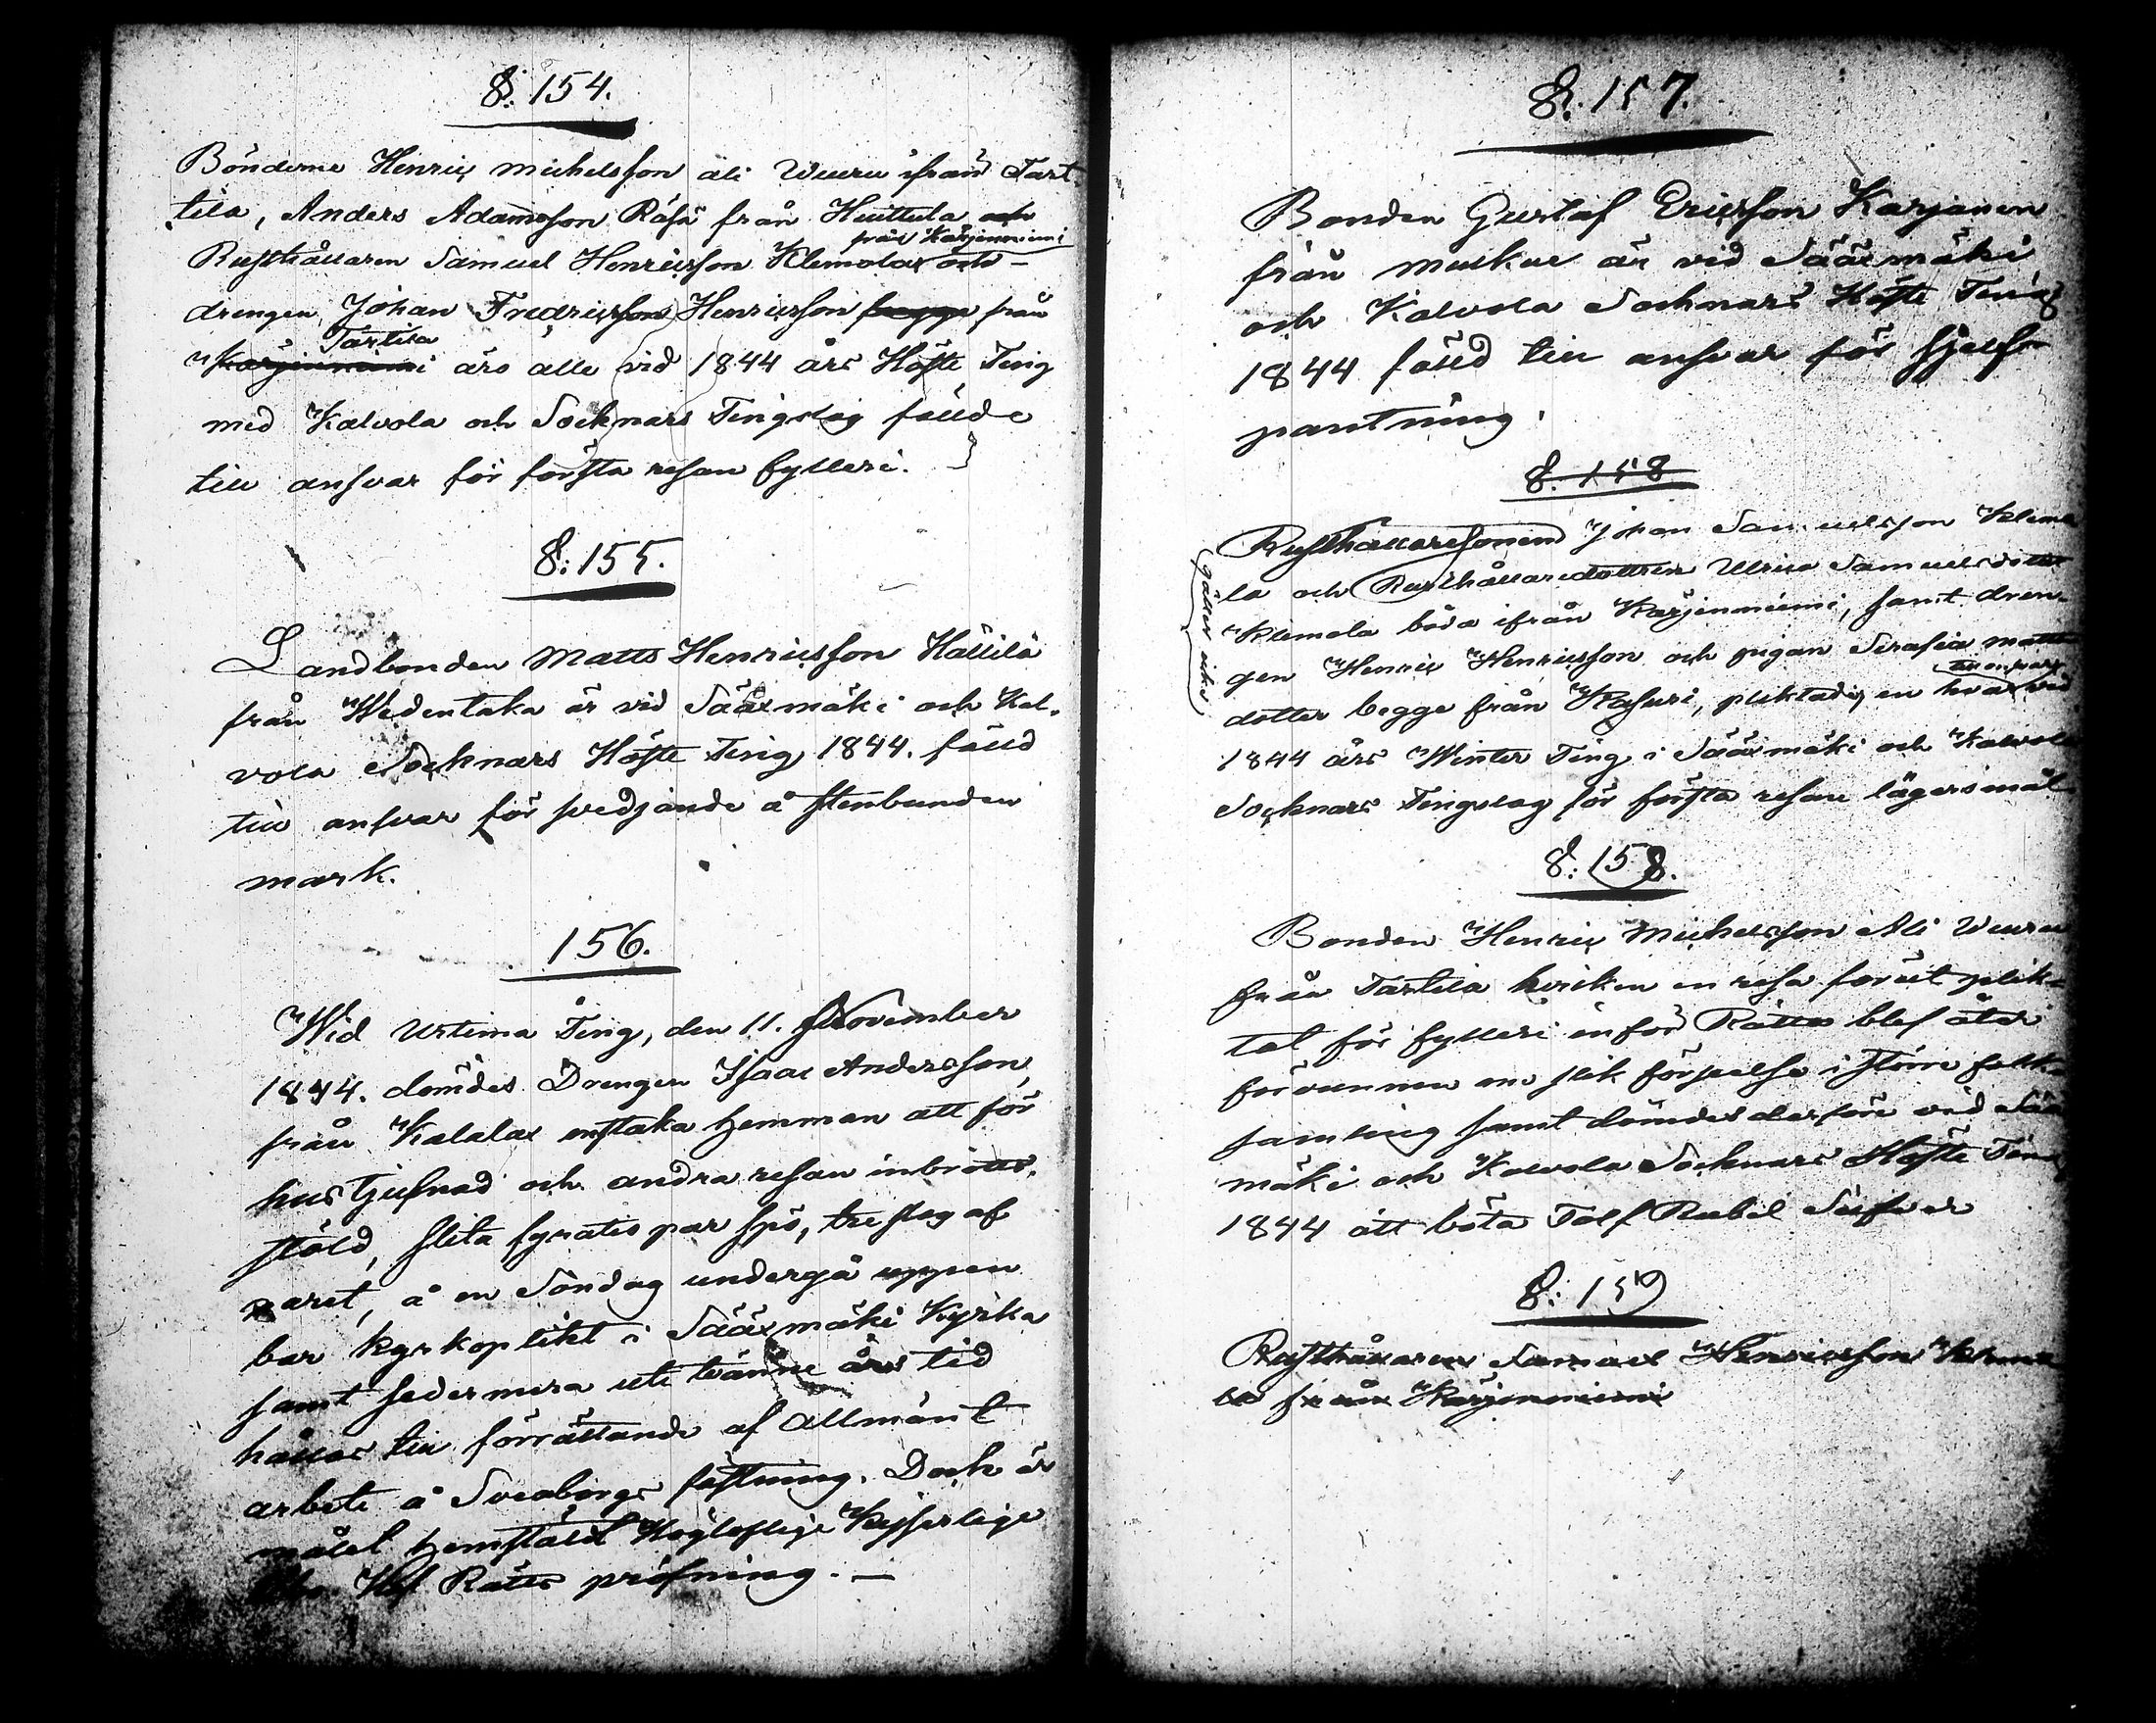 §: 154.
Bönderne Henric Michelsson Ali Wuuru ifrån Tart-
tila, Anders Adamsson Räfsä från Huittula och
från Kärjenniemi
Rusthållaren Samuel Henricsson Klemola och
drengen Johan Fredricsson Henricsson begge från
Tartila
Kärjenniemi äro alle vid 1844 års Höste Ting
med Kalvola och Socknars Tingslag fällde
till ansvar för första resan fylleri.
§: 155.
Landbonden Matts Henricsson Hällilä
från Wedentaka är vid Sääxmäki och Kal-
vola Socknars Höste Ting 1844. fälld
till ansvar för svedjande å stenbunden
mark.
156.
Wid Urtima Ting, den 11. November
1844. dömdes Drengen Isaac Andersson,
från Kalalax enstaka hemman att för
hustjufnad och andra resan inbrotts-
stöld, slita fyratio par spö, tre slag af
paret, å en Söndag undergå uppen-
bar kyrkoplikt i Sääxmäki Kyrka
samt sedermera ute tvänne års tid
hållas till förrättande af allmänt
arbete å Sveaborgs fästning. Dock är
målet hemstäldt Högloflige Kejserlige
Åbo Hof Rätts pröfning. —
§. 157.
Bonden Gustaf Ericsson Karjanen
från Muikue är vid Sääxmäki
och Kalvola Socknars Höste Ting
1844 fälld till ansvar för sjelf-
pantning.
§. 158
Rusthållaresonen Johan Samuelsson Klemo-
la och Rusthållaredottren Ulrica Samuelsdotter
Klemola båda ifrån Kärjenniemi, samt dren-
gen Henric Henricsson och pigan Serafia Matts-
dotter begge från Kasuri, pliktade en hvar vid
1844 års Winter Ting i Sääxmäki och Kalvola
Socknars Tingslag för första resan lägersmål.
gäller icke
§: 158.
Bonden Henric Michelsson Ali Wuuru
från Tartila hvilken en resa förut plik-
tat för fylleri inför Rätta blef åter
förvunnen om slik förseelse i större folk-
samling samt dömdes derföre vid Sääx-
mäki och Kalvola Socknars Höste Ting
1844 att böta Tolf Rubel Silfver
§: 159
Rusthållaren Samuel Henricsson Klemo-
la från Kärjenniemi